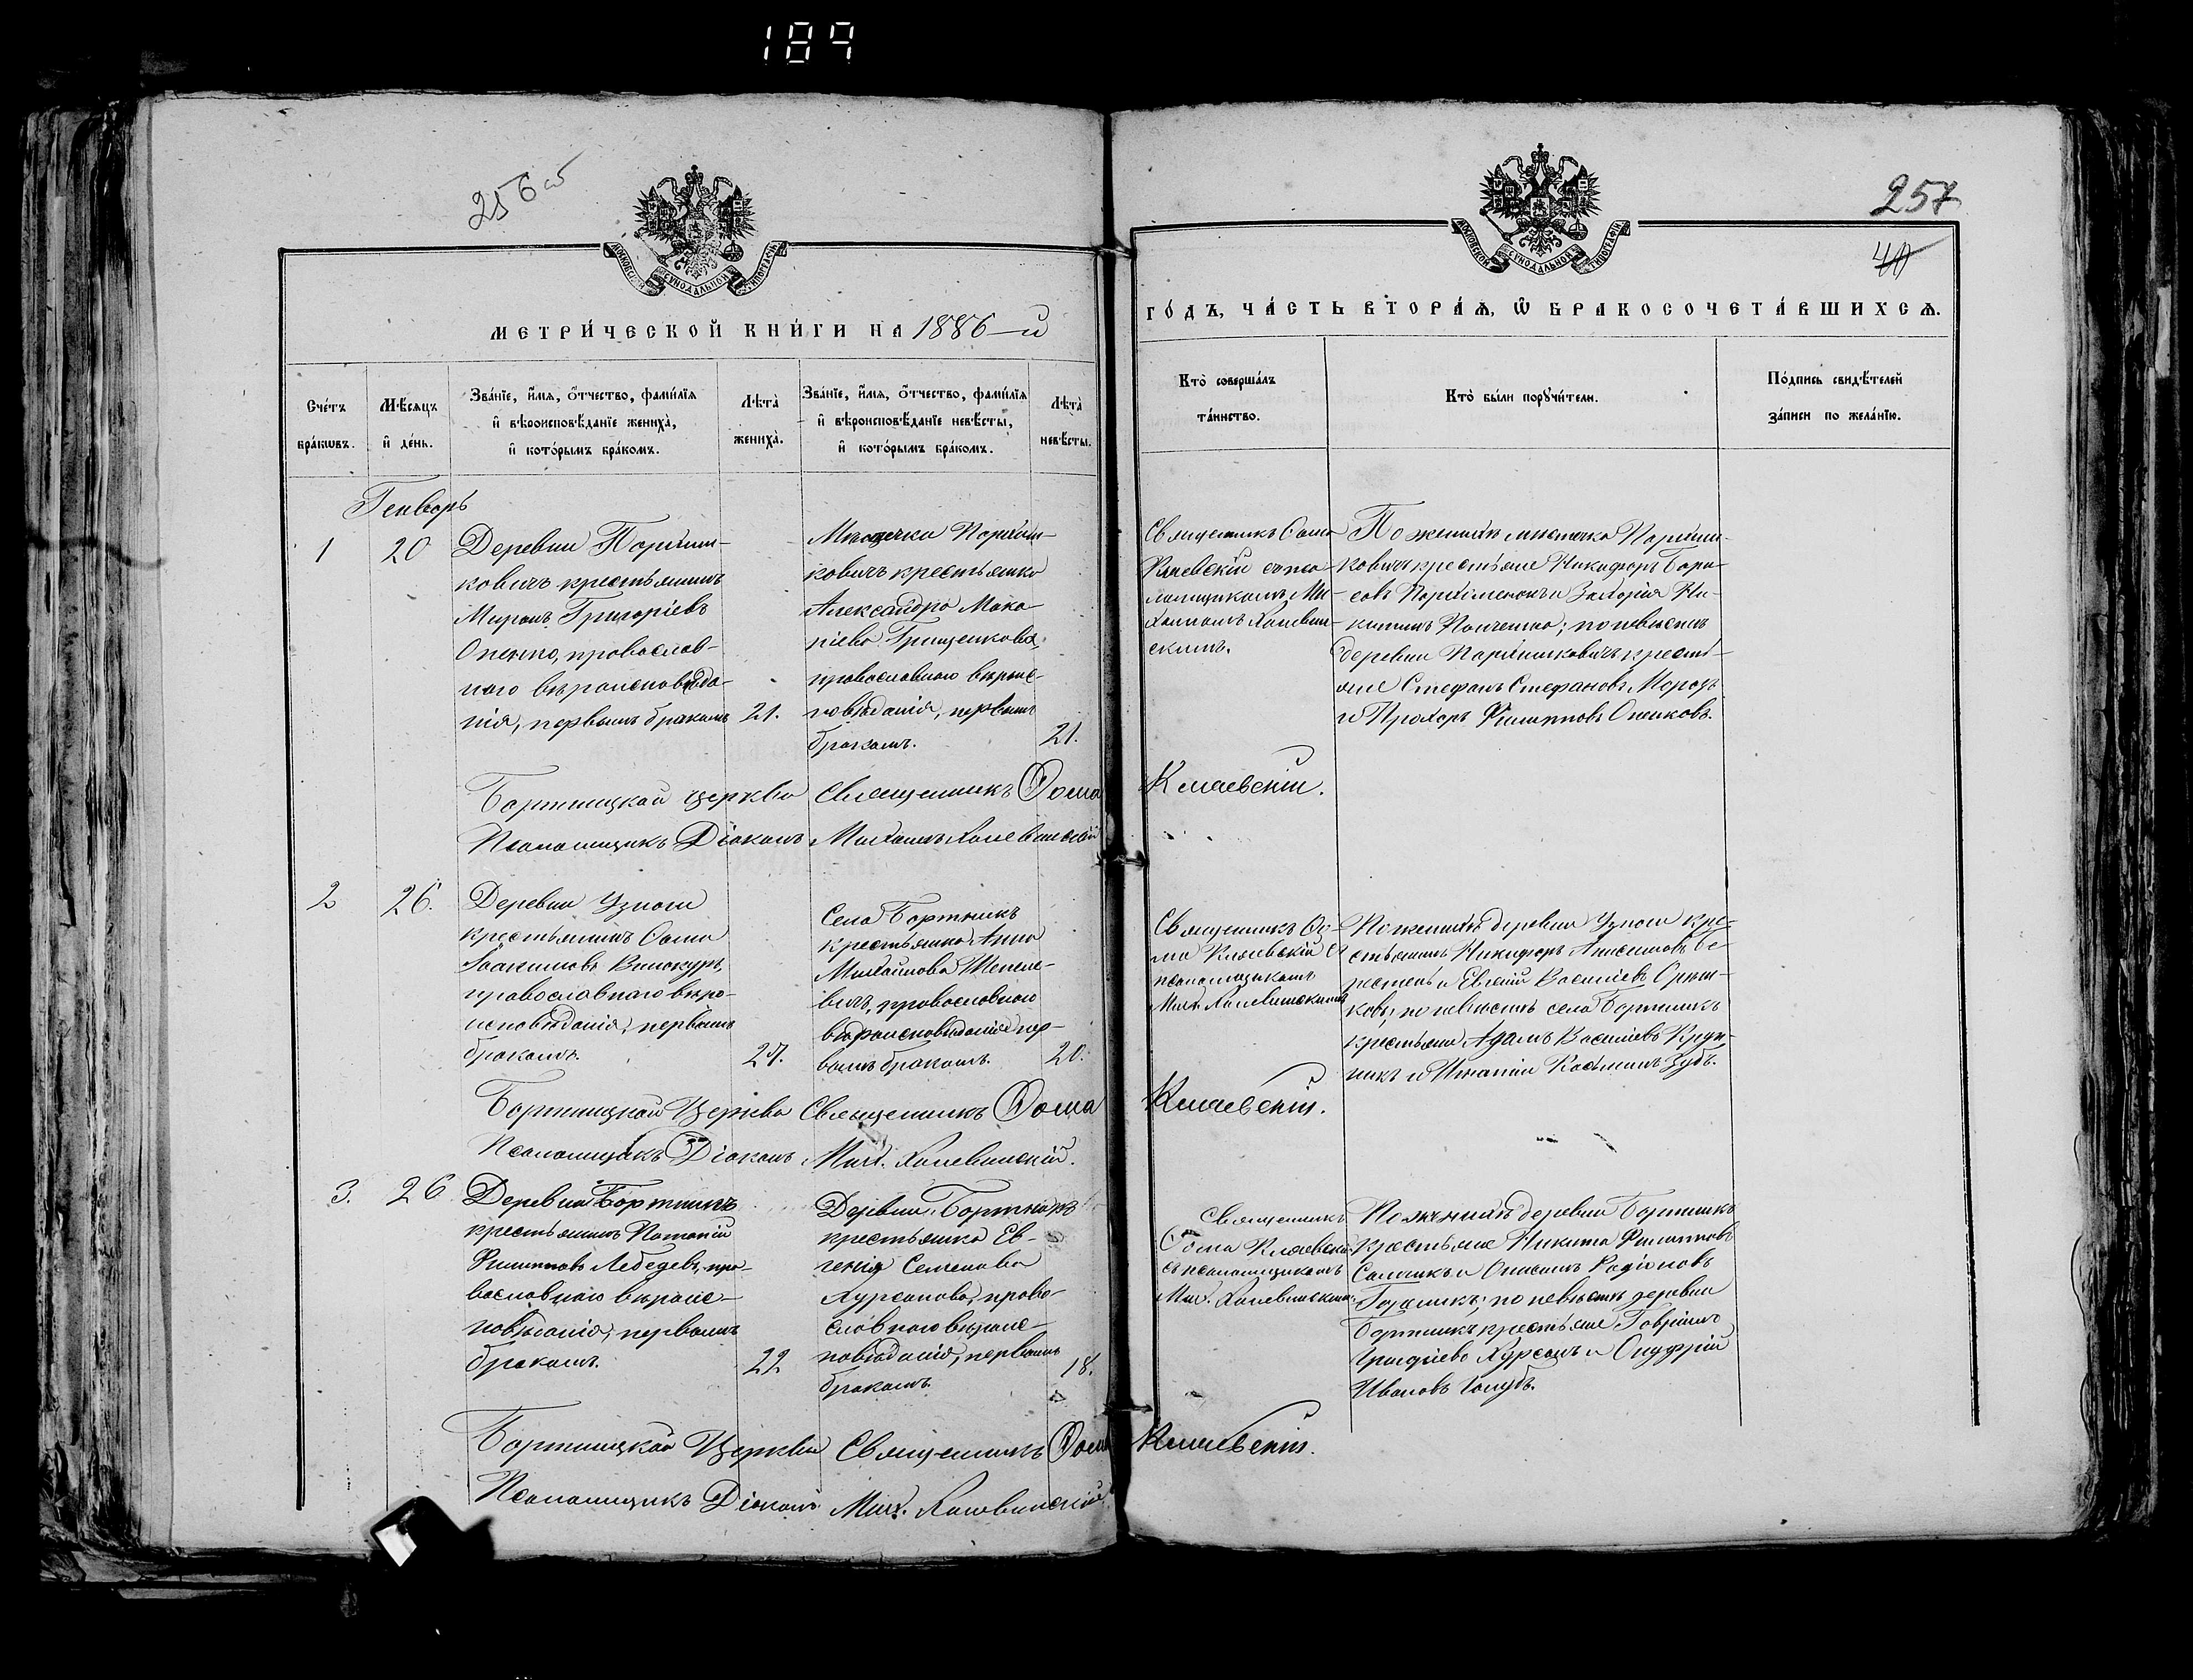 189
256 об
257
40
МОСКОВСКОЙ СѴНОДАЛЬНОЙ ТИПОГРАФІИ
МОСКОВСКОЙ СѴНОДАЛЬНОЙ ТИПОГРАФІИ
МЕТРИ́ЧЕСКОЙ КНИ́ГИ НА 1886-й
ГО́ДЪ, ЧА́СТЬ ВТОРА́Ѧ, Ѽ БРАКОСОЧЕТА́ВШИХСѦ.
Сче́тъ бра́кωвъ.
Мѣ́сѧцъ и҆ де́нь.
Зва́нїе, и҆́мѧ, ѻ҆́тчество, фами́лїѧ
и҆ вѣроисповѣ́данїе жениха̀,
и҆ кото́рымъ бра́комъ.
Лѣта̀ жениха̀.
Зва́нїе, и҆́мѧ, ѻ҆́тчество, фами́лїѧ
и҆ вѣроисповѣ́данїе невѣ́сты,
и҆ кото́рымъ бра́комъ.
Лѣта̀ невѣ́сты.
Кто̀ соверша́лъ
та́инство.
Кто̀ бы́ли порꙋчи́тели.
По́дпись свидѣ́телей
за́писи по жела́нїю.
Генварь
1
20
Деревни Порѣш-
ковичъ крестьянинъ
Миронъ Григоріевъ
Опенко, православ-
наго вѣроисповѣда-
нія, первымъ бракомъ
21.
Мѣстечка
ковичъ крестьянка
Александра Мака-
ріева Грищенкова,
православнаго вѣроис-
повѣданія, первымъ
бракомъ.
21.
Священникъ Фома
Клаевскій съ пса-
ломщикомъ Ми-
хаиломъ Халевин-
скимъ.
По женихѣ мѣстечка
ковичъ крестьяне Никифоръ Бори-
совъ Пархименокъ и Захарія Ни-
китинъ; по невѣстѣ
деревни крестья-
яне Стефанъ Стефановъ Морозъ
и Прохоръ Филипповъ Опенковъ.
Бортницкой церкви Священникъ Фома Клаевскій.
Псаломщикъ Діаконъ Михаилъ Халевинскій
2
26.
Деревни Узноги
крестьянинъ Фома
Іоакимовъ Винокуръ,
православнаго вѣро-
исповѣданія, первымъ
бракомъ.
27.
Села Бортникъ
крестьянка Анна
Михайлова Шепеле-
вичъ, православнаго
вѣроисповѣданія пер-
вымъ бракомъ.
20.
Священникъ Фо-
ма Клаевскій съ
псаломщикомъ
Мих. Халевинскимъ
По женихѣ деревни Узноги кре-
стьянинъ Никифоръ Анисимовъ Бе-
рестень и Евгеній Василіевъ
ковъ; по невѣстѣ села Бортникъ
крестьяне Адамъ Василіевъ
никъ и Игнатій Косьминъ Зубъ.
Бортницкой Церкви Священникъ Фома Клаевскій.
Псаломщикъ Діаконъ Мих. Халевинскій.
3.
26
Деревни Бортникъ
крестьянинъ Потапій
Филипповъ Лебедевъ, пра-
вославнаго вѣроис-
повѣданія, первымъ
бракомъ.
22
Деревни Бортникъ
крестьянка Ев-
генія Семенова
Хурсанова, право-
славнаго вѣроис-
повѣданія, первымъ
бракомъ.
18.
Священникъ
Фома Клаевскій
съ псаломщикомъ
Мих. Халевинскимъ.
По женихѣ деревни Бортникъ
крестьяне Никита Филипповъ
и Онисимъ Родіоновъ
по невѣстѣ деревни
Бортникъ крестьяне Гавріилъ
Григоріевъ Хурсанъ и Онуфрій
Ивановъ Голубъ.
Бортницкой Церкви Священникъ Фома Клаевскій.
Псаломщикъ Діаконъ Мих. Халевинскій